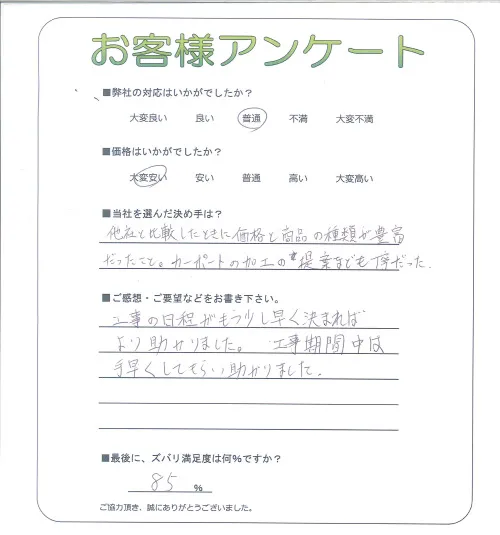 お客様アンケート
■弊社の対応はいかがでしたか？
大変良い 良い 普通 不満 大変不満
■価格はいかがでしたか？
大変安い 安い 普通 高い 大変高い
■当社を選んだ決め手は？
他社と比較したときに価格と商品の種類が豊富
だったこと。カーポートの加工の提案なども
■ご感想・ご要望などをお書き下さい。
工事の日程がもう少し早く決まれば
より助かりました。工事期間中は
手早くしてもらい助かりました.
■最後に、ズバリ満足度は何%ですか？
85 %
ご協力頂き、誠にありがとうございました。